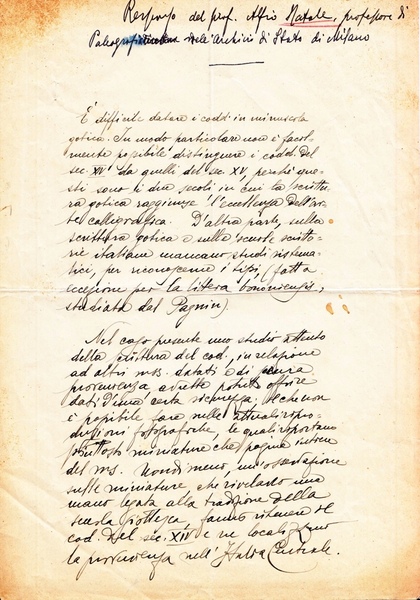 Responso del prof. Alfio Natale, professore di
Paleografia nell'Archivio di Stato di Milano
È difficile datare i codd. in minuscola
gotica. In modo particolare non è facil-
mente possibile distinguere i codd. del
sec. XIV da quelli del sec. XV, perché que-
sti sono li due secoli in cui la scrittu-
ra gotica raggiunge l'eccellenza dell'ar-
te calligrafica. D'altra parte, sulla
scrittura gotica e sulle scuole scritto-
rie italiane mancano studi sistema-
tici, per riconoscerne i tipi, (fatta
eccezione per la littera bononiensis,
studiata dal Pagnin).
Nel caso presente uno studio attento
della scrittura del cod., in relazione
ad altri ms. datati e di sicura
provenienza avrebbe potuto offrire
dati d'una certa sicurezza, il che non
è possibile fare nelle attuali ripro-
duzioni fotografiche, le quali riportano
piuttosto miniature che pagine intere
del ms. Nondimeno, un'osservazione
sulle miniature, che rivelano una
mano legata alla tradizione della
scuola giottesca, fanno ritenere il
cod. del sec. XIV e ne localizzano
la provenienza nell'Italia Centrale.